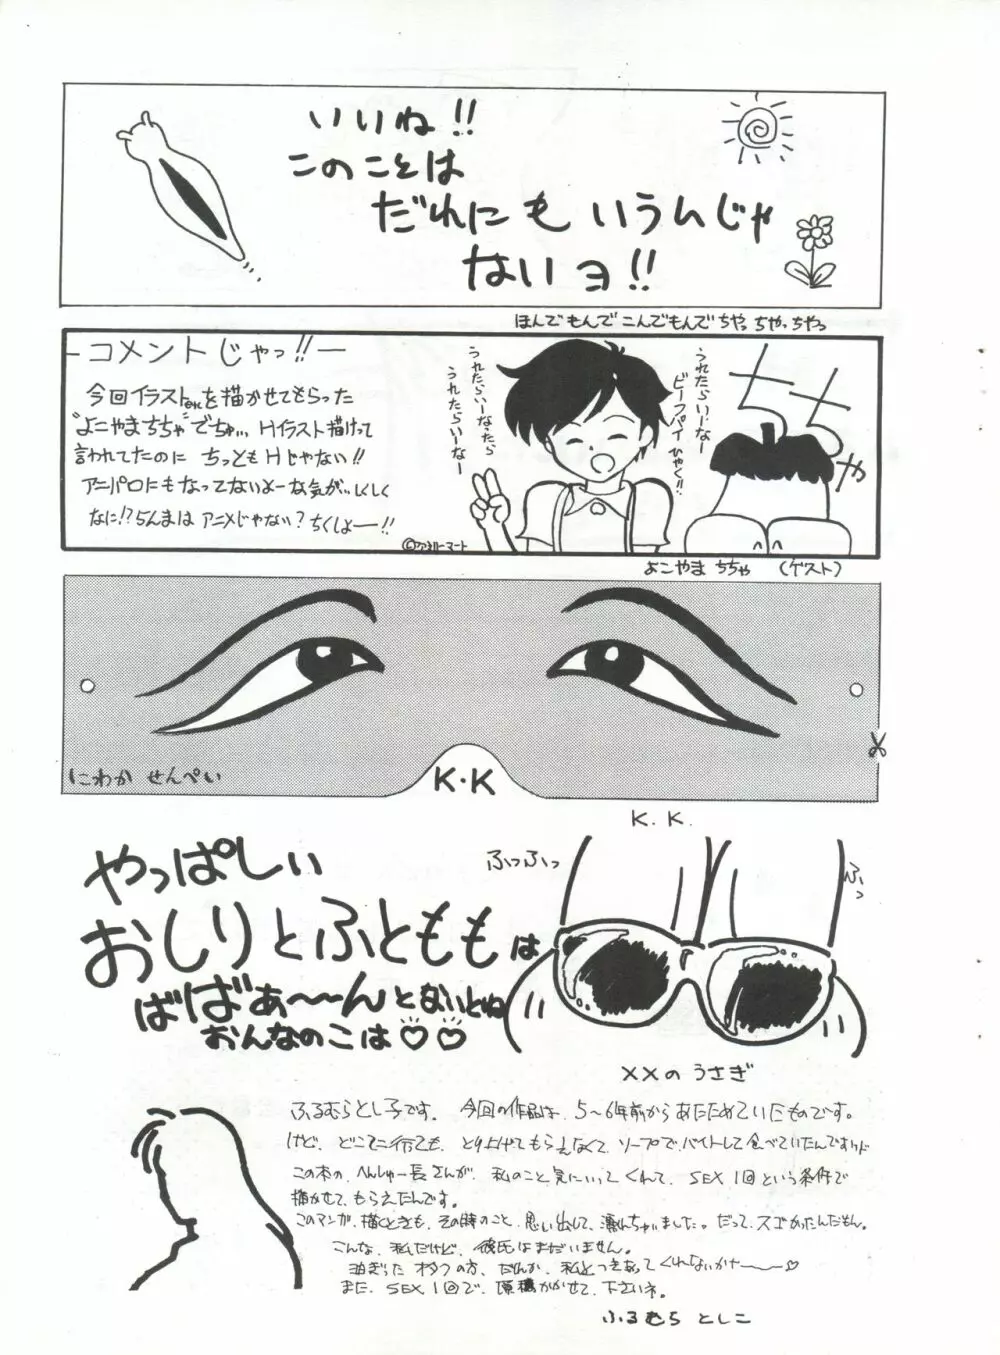 いいね!!
このことは
だれにもいうんじゃ
ないヨ!!
ほんでもんでこんでもんでちゃっちゃっちゃっ
-コメントじゃっ!!-
今回イラストetc.を描かせてもらった
"よこやまちちゃ"でちゅ... Hイラスト描けって
言われてたのに ちっともHじゃない!!
アニパロにもなってないよーな気が...しくしく
なに!?らんまはアニメじゃない?ちくしょー!!
うれたらいーなったら
うれたらいーなー
うれたらいーなー
ビーフパイひゃく!!
ちちゃ
©ファミリーマート
よこやま ちちゃ (ゲスト)
にわか せんぺい
K・K
K. K.
やっぱしぃ
おしりとふとももは
ばばぁ〜〜んとないとね
おんなのこは♡♡
ふっふっ
ふっ
××の うさぎ
ふるむらとし子です。今回の作品は、5〜6年前からあたためていたものです。
けど、どこに行っても、とり上げてもらえなくて、ソープでバイトして食べていたんですけど
この本の、へんしゅー長さんが、私のこと、気にいってくれて、SEX1回という条件で
描かせて、もらえたんです。
このマンガ、描くときも、その時のこと、思い出して、濡れちゃいました。だって、スゴかったんだもん。
こんな、私だけど、彼氏はまだいません。
オタクの方、だれか、私とつきあってくれないかナー〜♡
また、SEX1回で、原稿かかせて、下さいネ。
ふるむら としこ